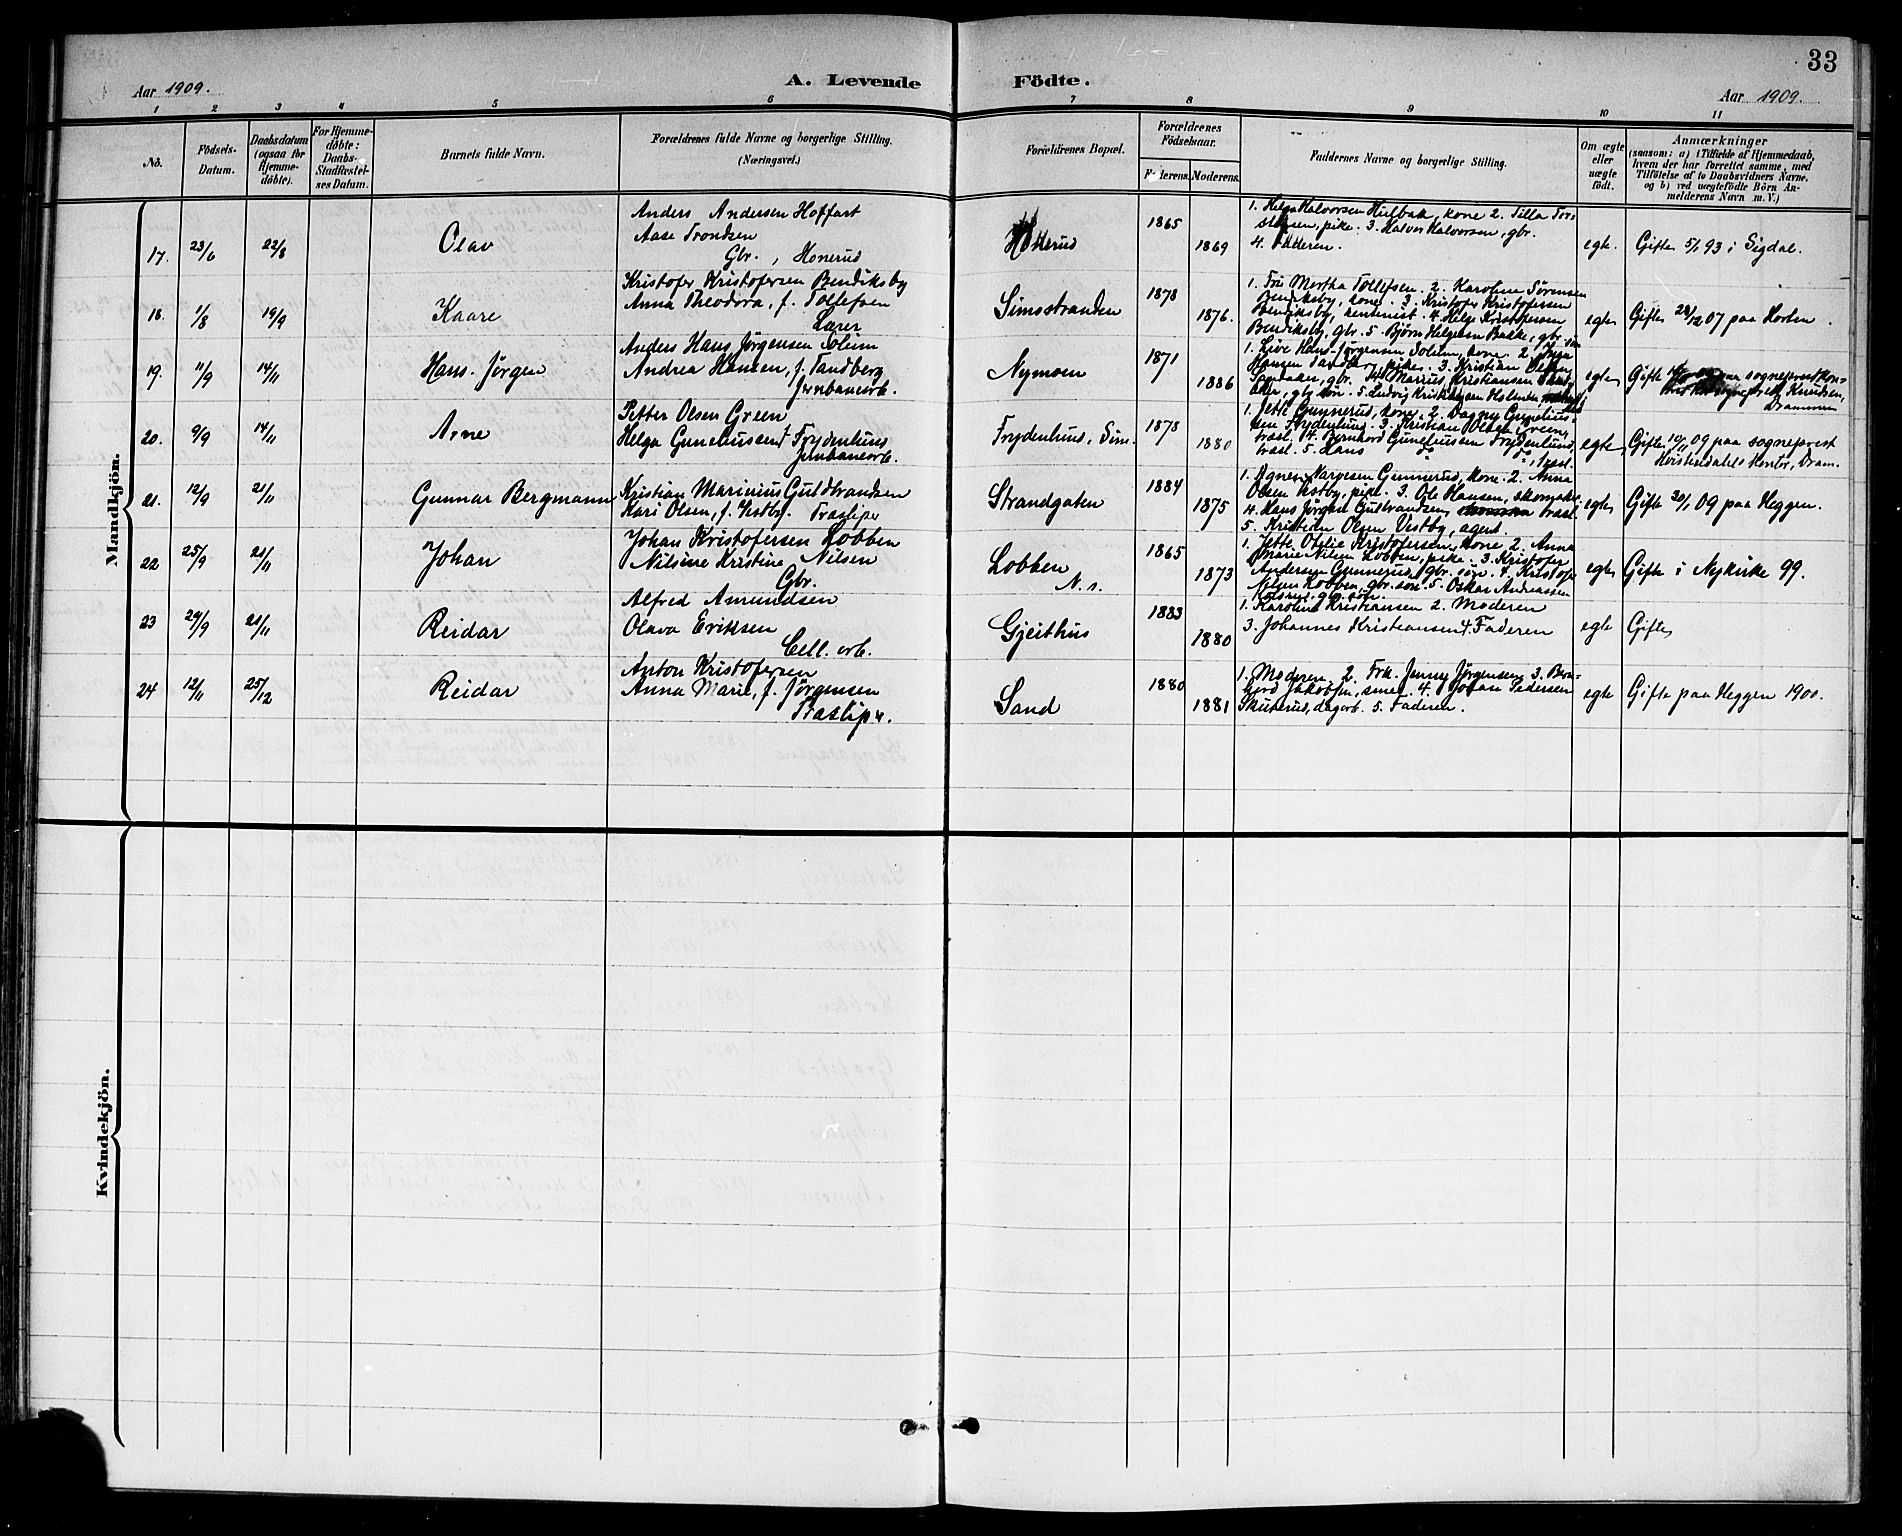 33
Aar 1909.
A. Levende Födte.
Aar 1909.
1 2 3 4 5 6 7 8 9 10 11
No.
Födsels-Datum.
Daabsdatum (ogsaa for Hjemme-döbte).
For Hjemme-döbte: Daabs-Stadfæstel-ses Datum.
Barnets fulde Navn.
Forældrenes fulde Navne og borgerlige Stilling. (Næringsvei.)
Forældrenes Bopæl.
Forældrenes Födselsaar.
Faderens. Moderens.
Faddernes Navne og borgerlige Stilling.
Om ægte eller uægte födt.
Anmærkninger
(saasom: a) i Tilfælde af Hjemmedaab,
hvem der har forrettet samme, med
Tilföielse af to Daabsvidners Navne,
og b) ved uægtefödte Börn An-
melderens Navn m. V.)
Mandkjön.
17. 23/6 22/8 Olav
Anders Andersen Hoffart
Aase Trondsen
Gbr., Honerud
1865 1869
1. Helga Halvorsen Hulbak, kone 2. Tilla Tor-
stensen, pike. 3. Halvor Halvorsen, gbr.
4. Faderen.
egte. Gifte 5/1 93 i Sigdal.
18. 1/8 19/9 Kaare
Kristofer Kristofersen Bendiksby
Anna Theodora, f. Tollefsen
Lærer
Simostranden 1878 1876.
1. Fru Martha Tollefsen. 2. Karoline Sörensen
Bendiksby, kone. 3. Kristofer Kristofersen
Bendiksby, rentenist. 4. Helge Kristofersen
Bendiksby, gbr. 5. Björn Helgesen Bakke, gbr. søn
egte Gifte 28/12 07 paa Horten.
19. 11/9 14/11 Hans Jörgen
Anders Hans Jörgensen Solum
Andrea Hansen, f. Tandberg
Jernbanearb.
Nymoen 1871 1886
1. Live Hans-Jörgensen Solum, kone. 2.
Hansen Tandberg, pike. 3. Kristian Olsen
gbr. 4. Marius Kristiansen
gbr. søn. 5. Ludvig Kristiansen
egte Gifte sogneprest Knudsen,
Drammen
20. 9/9 14/11 Arne
Petter Olsen Green
Helga Guneliussen f. Frydenlund
Jernbanearb.
Frydenlund, Sim. 1878 1880
1. Jette Gunnerud, kone. 2. Dagny Gunelius-
sen Frydenlund. 3. Kristian Olsen Green,
træsl. 4. Bernhard Guneliussen Frydenlund,
træsl. 5. Hans do do, træsl.
egte Gifte 10/11 09 paa sogneprest
Kristendahls Kontor, Dram.
21. 12/9 21/11 Gunnar Bergmann
Kristian Marinius Guldbrandsen
Kari Olsen, f. Vestby. Træsliper
Strandgaten 1884 1875
1. Agnes Gunnerud, kone. 2. Anna
Olsen Vestby, pike. 3. Ole Hansen, skomaker.
4. Hans Jörgen Gulbrandsen, træsl.
5. Kristian Olsen Vestby, agent.
egte Gifte 30/1 09 paa Heggen.
22 25/9 21/11 Johan
Johan Kristofersen Lobben
Nilsine Kristine Nilsen
Gbr.
Lobben
N. s. 1865 1873
1. Jette Otelie Kristofersen, kone 2. Anna
Marie Nilsen Lobben, pike. 3. Kristofer
Andersen Gunnerud, gbr. søn. 4. Kristofer
Nilsen Lobben, gbr. søn. 5. Oskar Andreassen
gbr. søn.
egte Gifte i Nykirke 99.
23 29/9 21/11 Reidar
Alfred Amundsen
Olava Eriksen
Cell. arb.
Gjeithus 1883 1880
1. Karoline Kristiansen 2. Moderen
3. Johannes Kristiansen 4. Faderen
egte Gifte
24 12/11 25/12 Reidar
Anton Kristofersen
Anna Marie, f. Jörgensen
Træslip.
Sand 1880 1881
1. Moderen. 2. Frk. Jenny Jörgensen, 3. Bern-
hard Jakobsen, smed. 4. Johan Pedersen
Skuterud, dagarb. 5. Faderen.
egte Gifte paa Heggen 1900.
Kvindekjön.